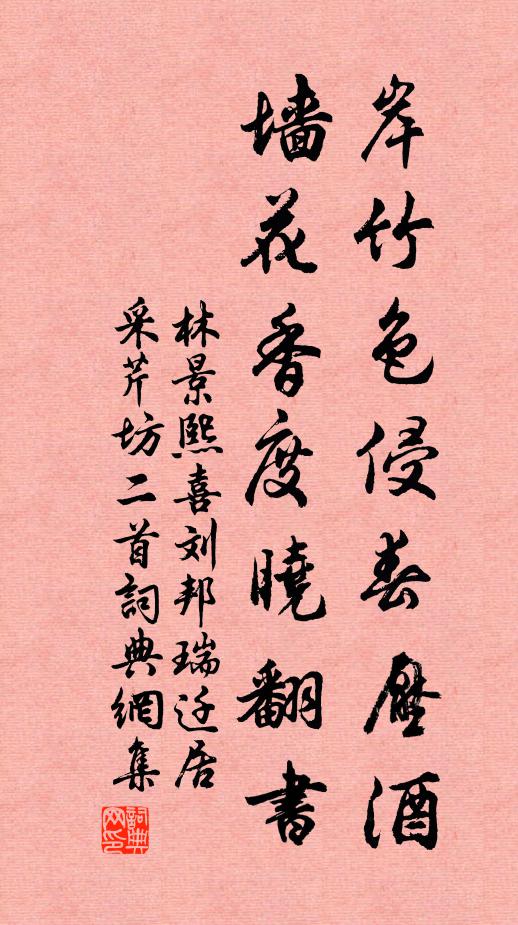 岸竹色侵春压酒
墙花香度晓翻書
林景熙喜刘邦瑞迁居
采芹坊二首詞典網集
詞典
网印